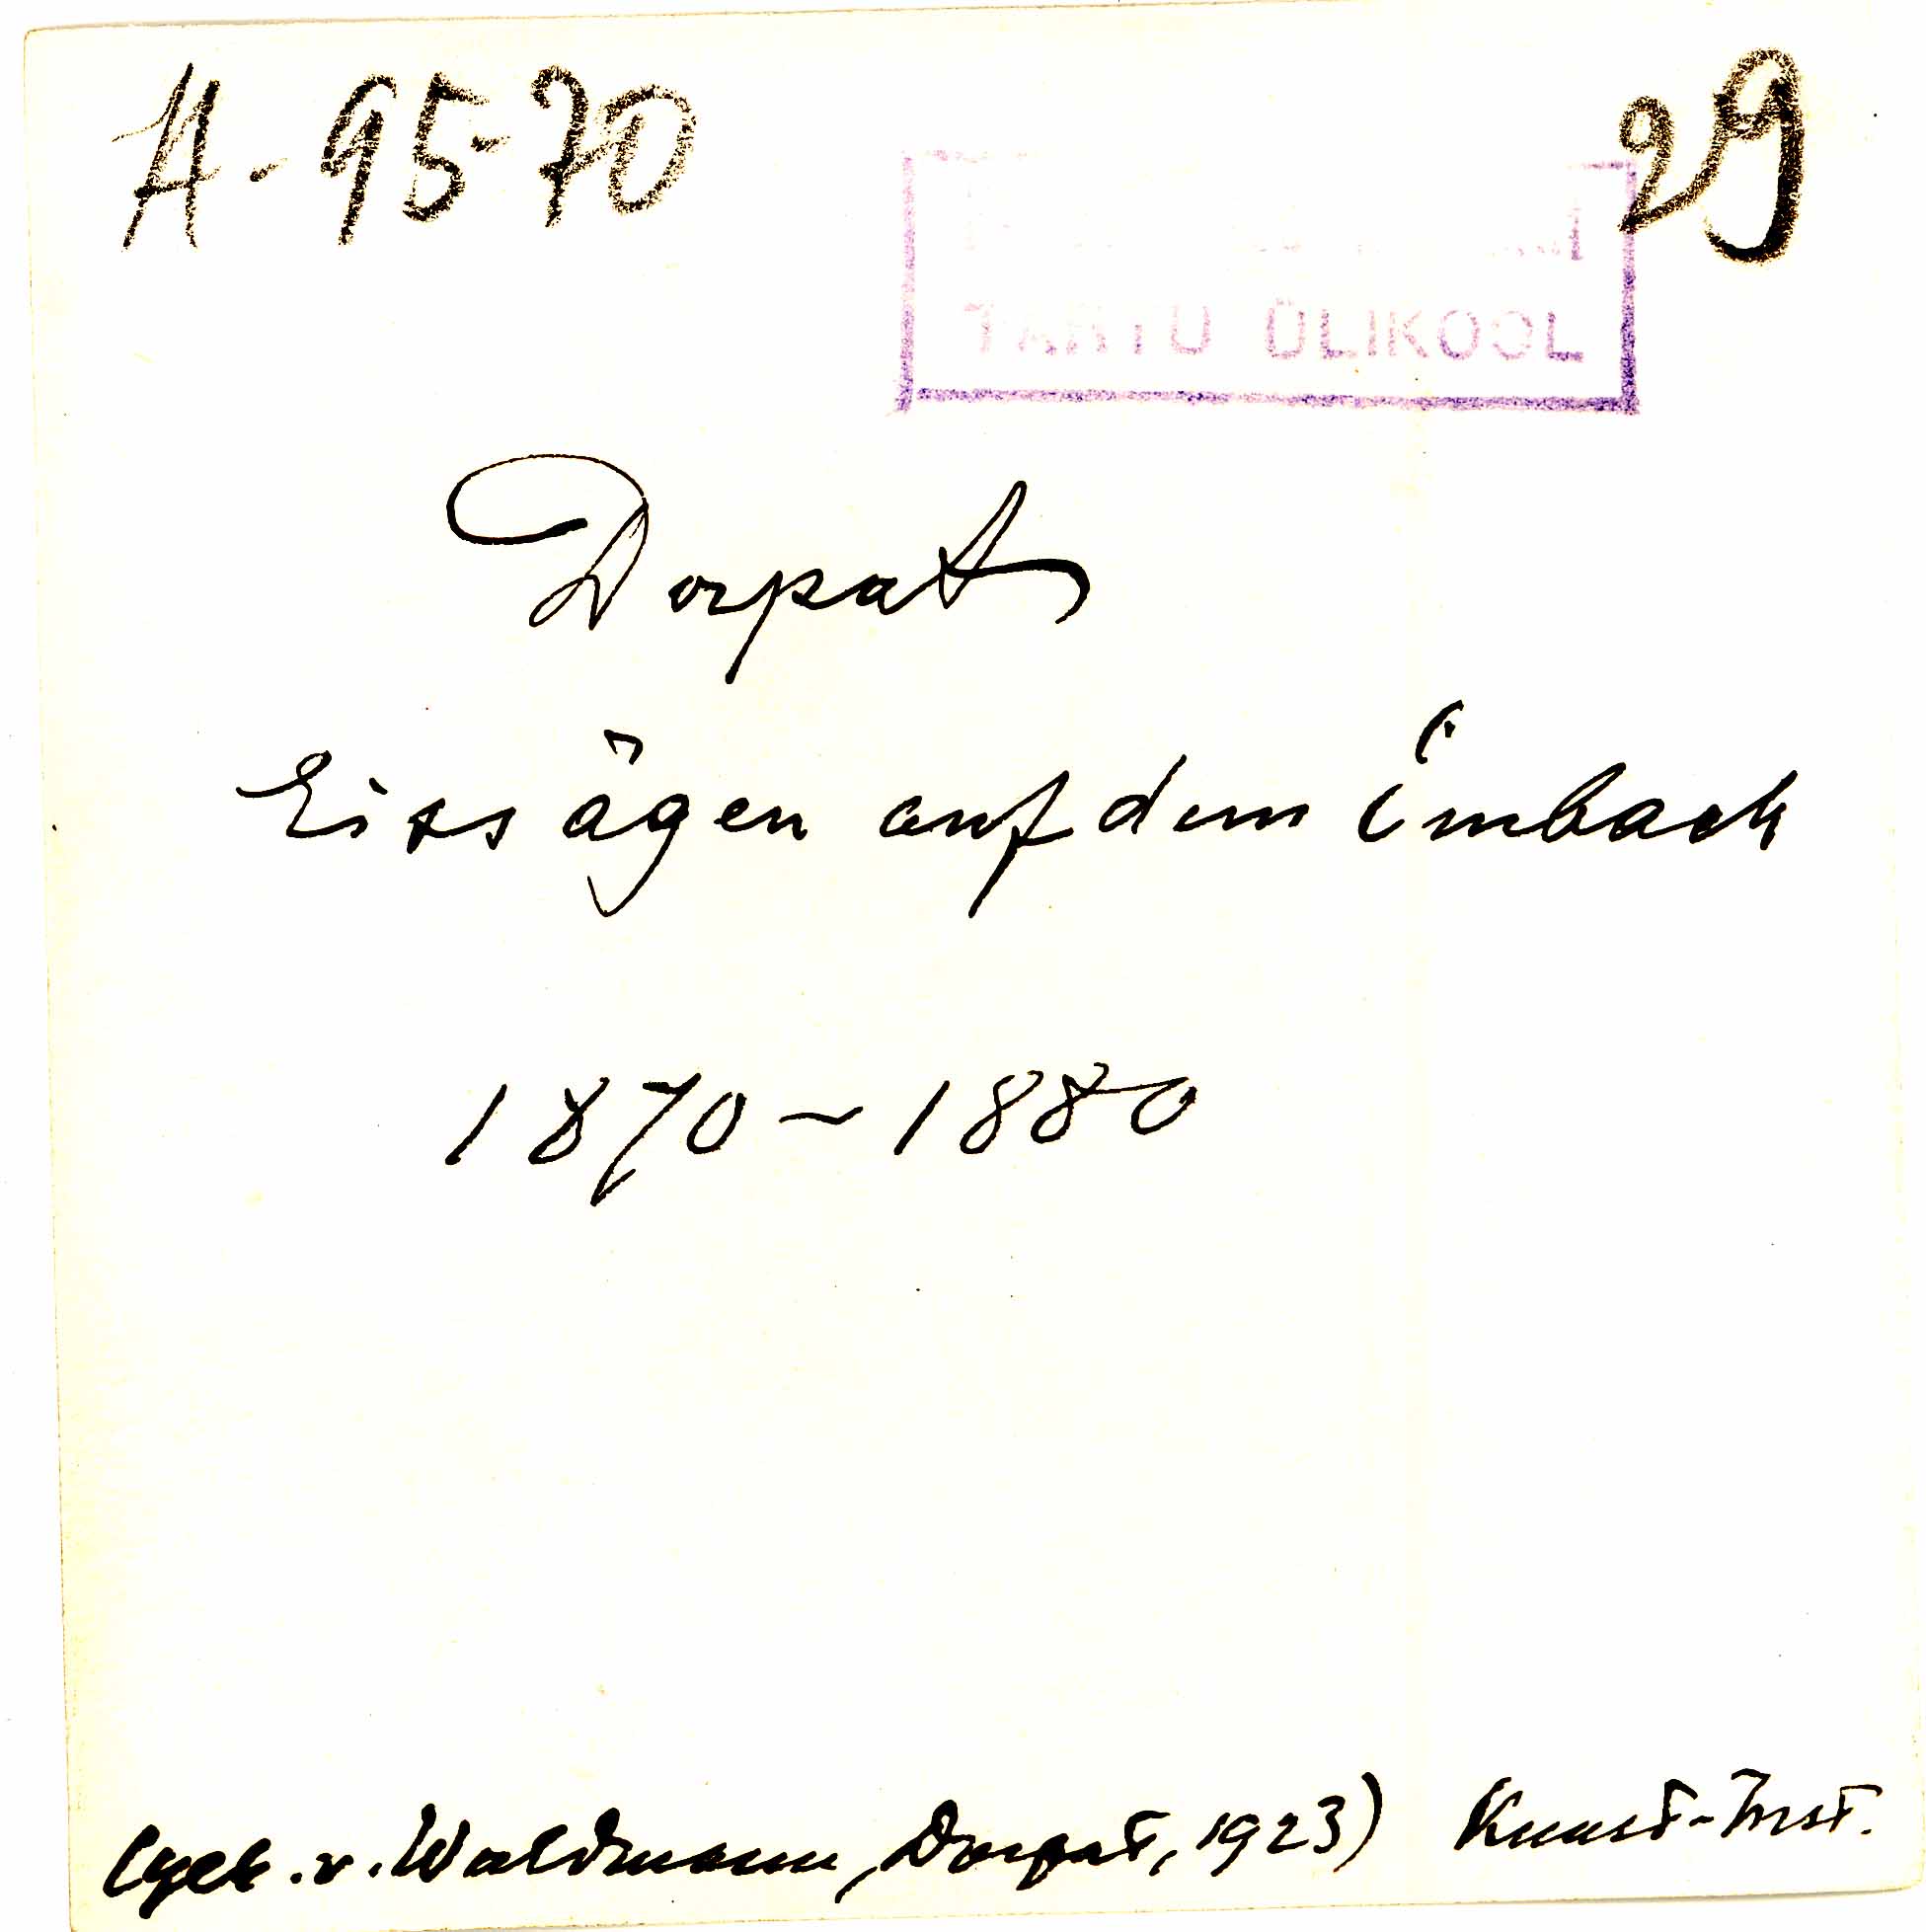 A-95-70
29
TARTU ÜLIKOOL
Dorpat
Eissägen auf dem Embach
1870~1880
(geb. v. Waldmann, Dorpat, 1923) Kunst-Inst.